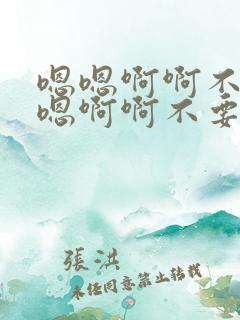 嗯嗯啊啊不
嗯啊啊不要
張洪
未经同意禁止转载